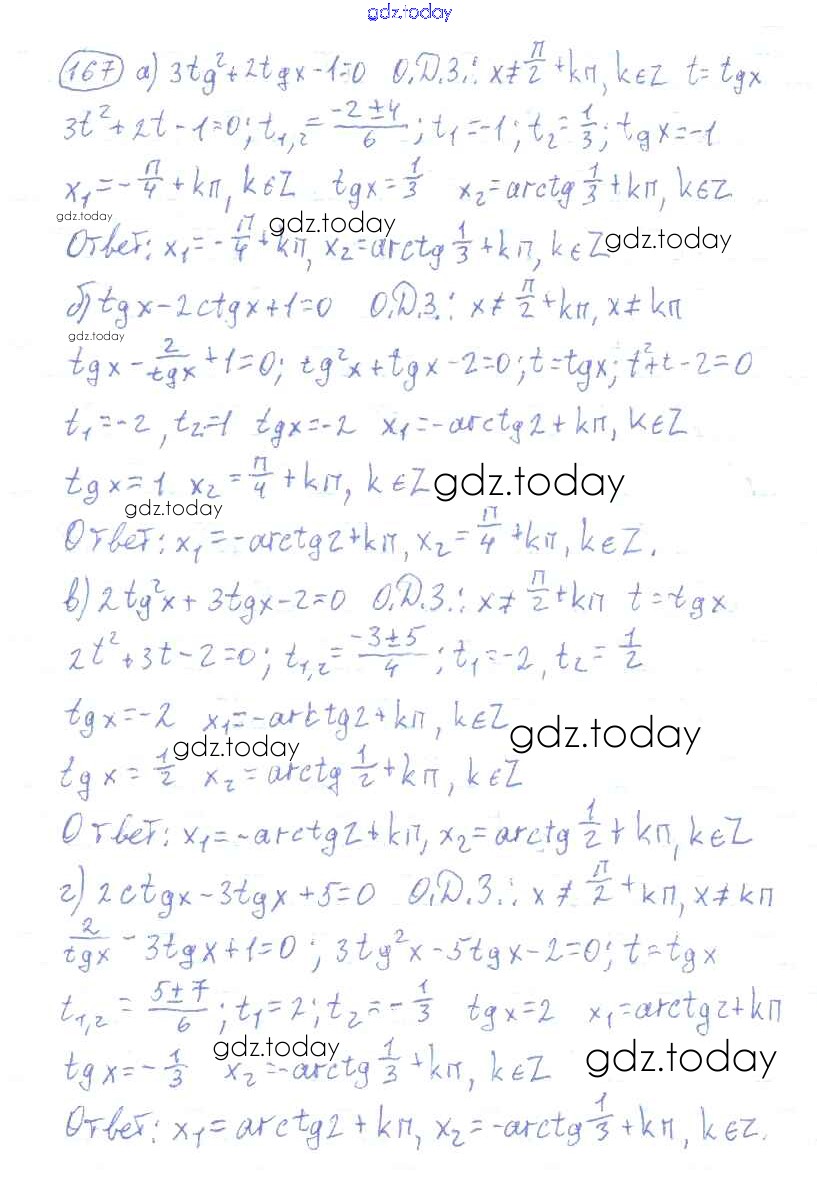 gdz.today
167 а) 3tg²+2tgx-1=0 О.Д.З.: x≠π/2+kπ, k∈Z t=tgx
3t²+2t-1=0; t₁,₂=(-2±4)/6; t₁=-1; t₂=1/3; tgx=-1
x₁=-π/4+kπ, k∈Z tgx=1/3 x₂=arctg 1/3+kπ, k∈Z
gdz.today gdz.today gdz.today
Ответ: x₁=-π/4+kπ, x₂=arctg 1/3+kπ, k∈Z
б) tgx-2ctgx+1=0 О.Д.З.: x≠π/2+kπ, x≠kπ
gdz.today
tgx-2/tgx+1=0; tg²x+tgx-2=0; t=tgx; t²+t-2=0
t₁=-2, t₂=1 tgx=-2 x₁=-arctg2+kπ, k∈Z
tgx=1 x₂=π/4+kπ, k∈Z gdz.today
gdz.today
Ответ: x₁=-arctg2+kπ, x₂=π/4+kπ, k∈Z.
в) 2tg²x+3tgx-2=0 О.Д.З.: x≠π/2+kπ t=tgx
2t²+3t-2=0; t₁,₂=(-3±5)/4; t₁=-2, t₂=1/2
tgx=-2 x₁=-arctg2+kπ, k∈Z gdz.today
gdz.today
tgx=1/2 x₂=arctg 1/2+kπ, k∈Z
Ответ: x₁=-arctg2+kπ, x₂=arctg 1/2+kπ, k∈Z
г) 2ctgx-3tgx+5=0 О.Д.З.: x≠π/2+kπ, x≠kπ
2/tgx-3tgx+1=0; 3tg²x-5tgx-2=0; t=tgx
t₁,₂=(5±7)/6; t₁=2; t₂=-1/3 tgx=2 x₁=arctg2+kπ
gdz.today gdz.today
tgx=-1/3 x₂=-arctg 1/3+kπ, k∈Z
Ответ: x₁=arctg2+kπ, x₂=-arctg 1/3+kπ, k∈Z.